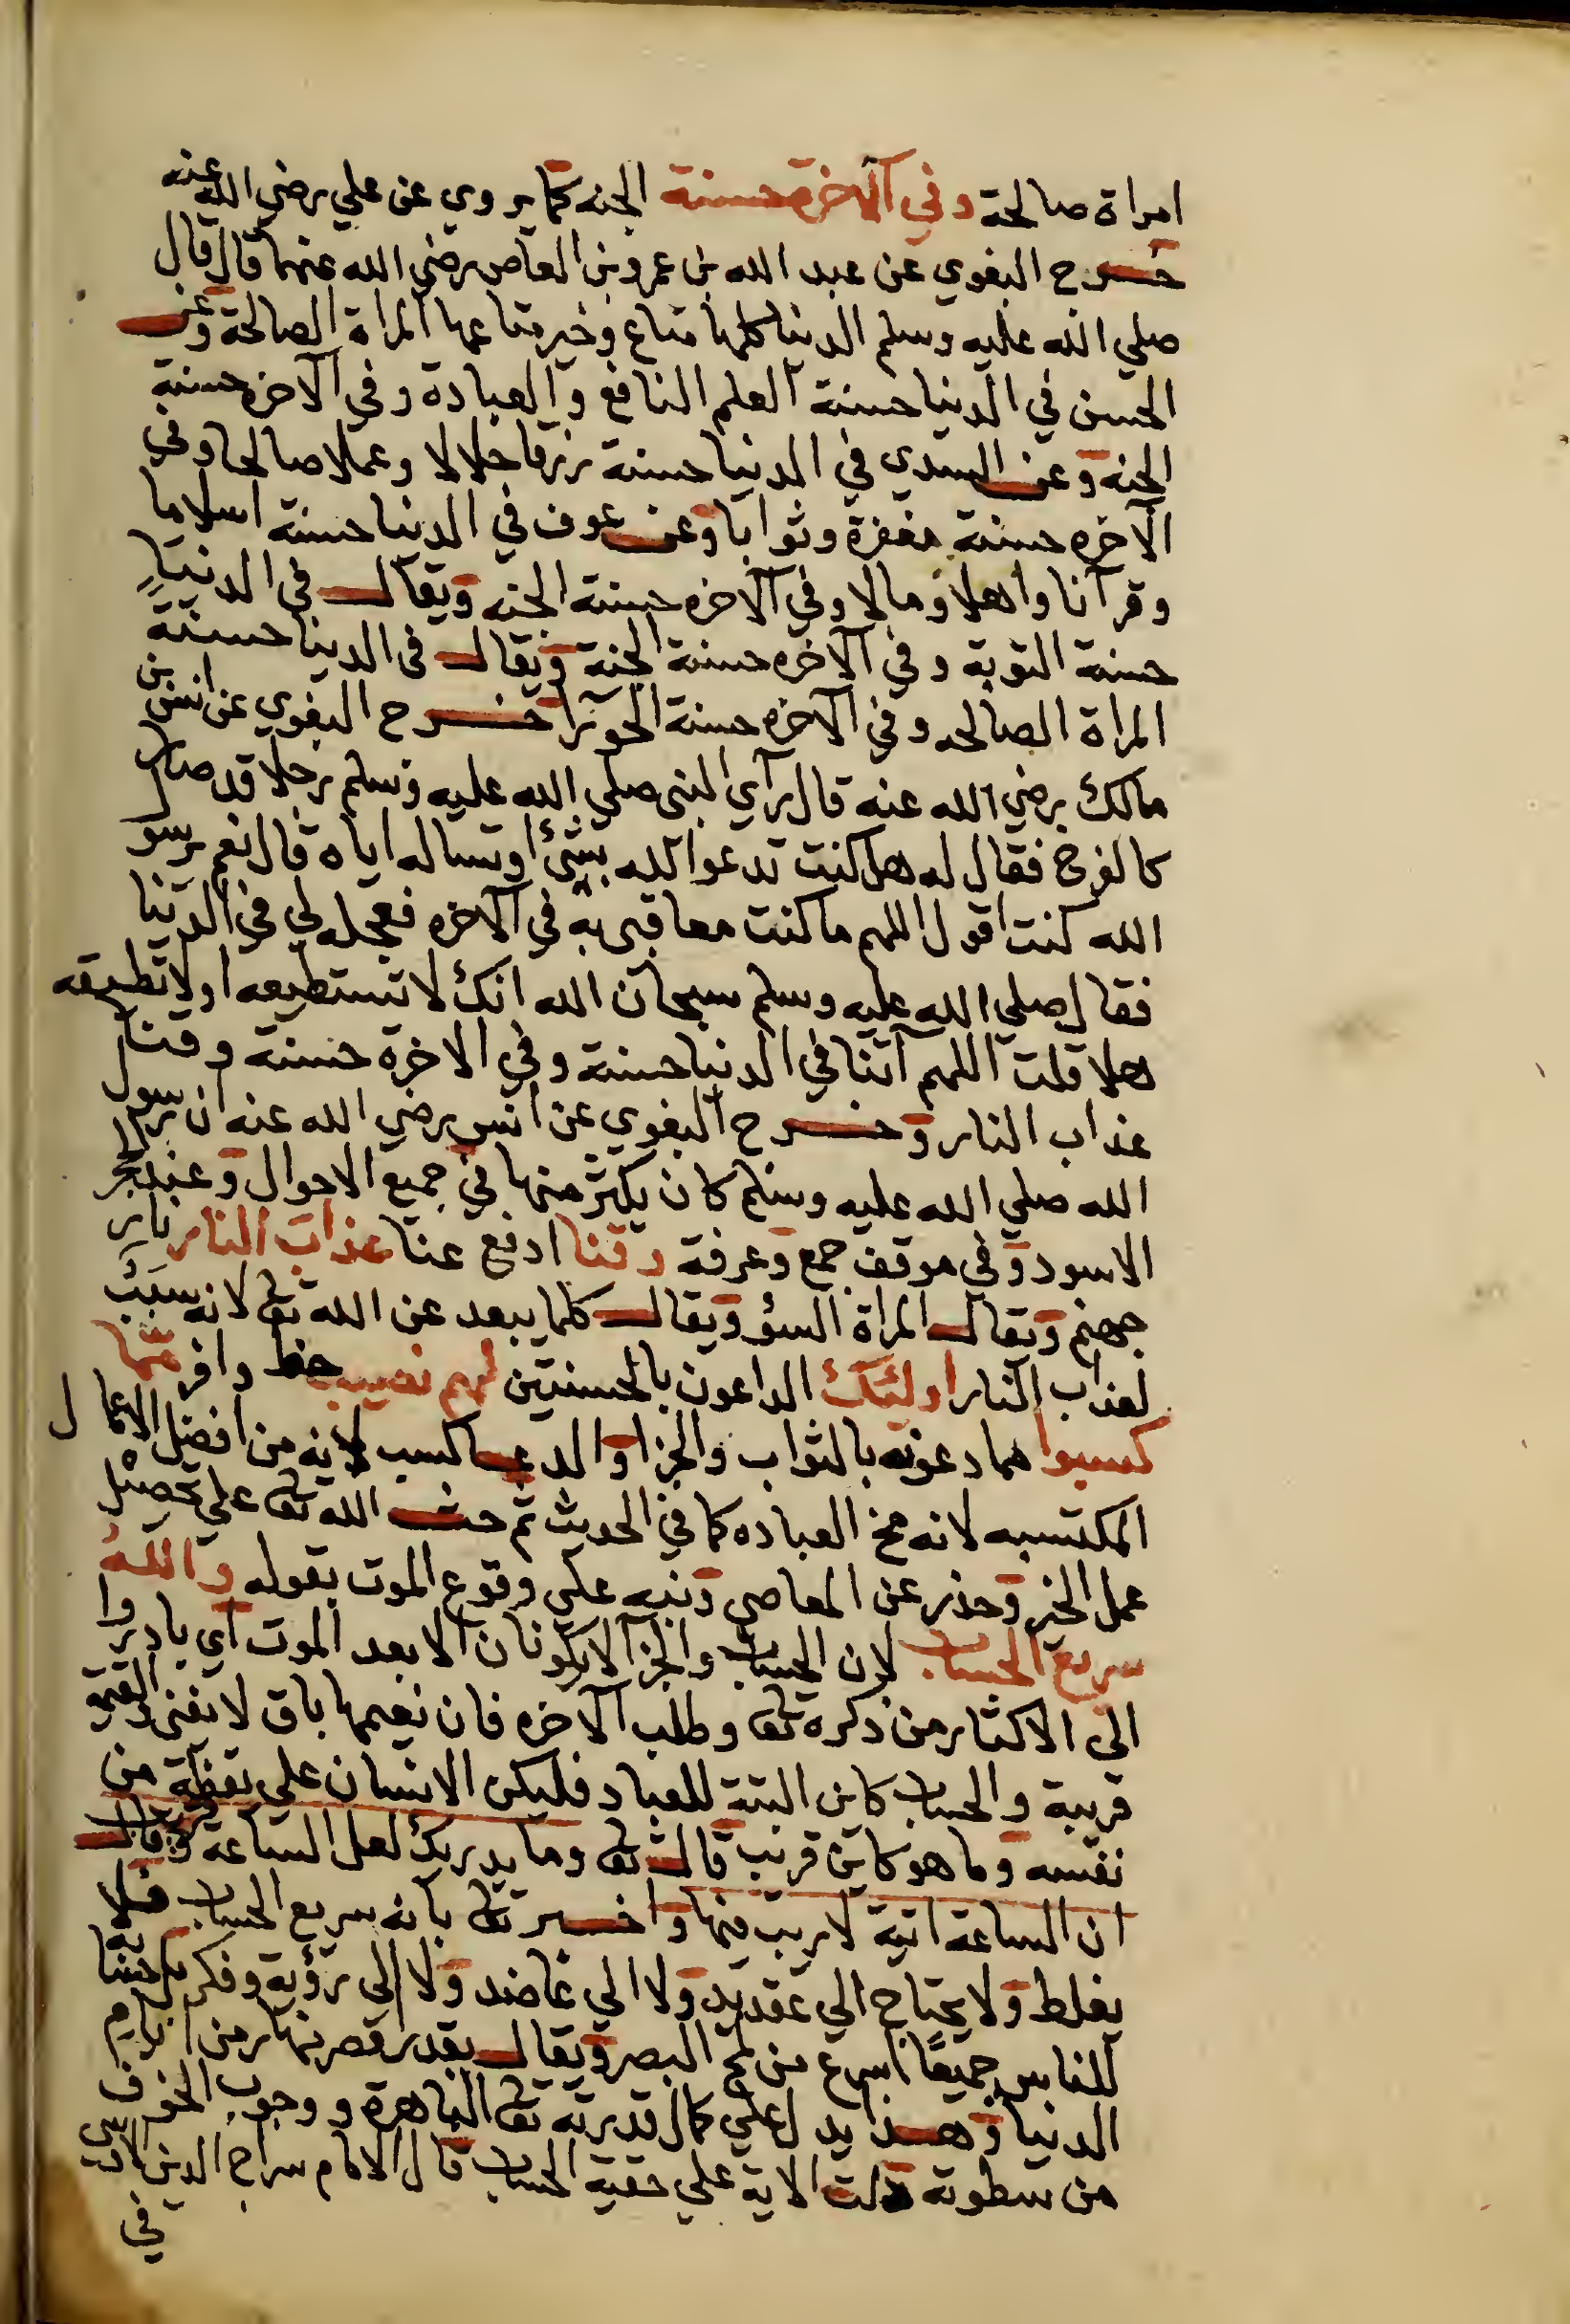 امراة صالحة وفي الآخرة حسنة الجنه كما يروي عن علي رضي الله عنه
خرج البغوي عن عبد الله بن عمرو بن العاص رضي الله عنهما قال قال
صلي الله عليه وسلم الدنيا كلها متاع وخير متاعها المراة الصالحة وعن
الحسن في الدنيا حسنة العلم النافع والعبادة وفي الآخره حسنة
الجنه وعن السدي في الدنيا حسنة رزقا حلالا وعملا صالحا وفي
الآخره حسنة مغفرة وثوابا وعن عوف في الدنيا حسنة اسلاما
وقرآنا واهلا ومالا وفي الآخره حسنة الجنه ويقال في الدنيا
حسنة التوبة وفي الآخره حسنة الجنة ويقال في الدنيا حسنة
المراة الصالحه وفي الآخره حسنة الحورآ خرج البغوي عن انس بن
مالك رضي الله عنه قال رآي النبي صلي الله عليه وسلم رجلا قد صار
كالفرخ فقال له هل كنت تدعوا الله بشئ او تساله اياه قال نعم يرسول
الله كنت اقول اللهم ما كنت معاقبي به في الآخره فعجله لي في الدنيا
فقال صلي الله عليه وسلم سبحان الله انك لا تستطيعه او لا تطيقه
هلا قلت اللهم آتنا في الدنيا حسنة وفي الاخرة حسنة وقنا
عذاب النار وخرج البغوي عن انس رضي الله عنه ان رسول
الله صلي الله عليه وسلم كان يكثر منها في جميع الاحوال وعند الحجر
الاسود وفي موقف جمع وعرفة وقنا ادفع عنا عذاب النار نار
جهنم ويقال المراة السؤ ويقال كلما يبعد عن الله تعالى لانه سبب
لعذاب النار اولئك الداعون بالحسنتين لهم نصيب حظ وافر مما
كسبوا مما دعوته بالثواب والجزا والدعا كسب لانه من افضل الاعمال
المكتسبه لانه مخ العباده كما في الحديث ثم حث الله تعالى علي تحصيل
عمل الخير وحذر عن المعاصي ونبه علي وقوع الموت بقوله والله
سريع الحساب لان الحساب والجزآ لا يكونان الا بعد الموت اي بادروا
الي الاكثار من ذكره تعالى وطلب الآخره فان نعيمها باق لا يفنى والقيمة
قريبة والحساب كاين البتة للعباد فليكن الانسان علي تقظة من
نفسه وما هو كاين قريب قال تعالى وما يدريك لعل الساعة قريب وقال
ان الساعة اتية لا ريب فيها واخبر تعالى بانه سريع الحساب فلا
يغلط ولا يحتاج الي عقد يد ولا الي عاضد ولا الي رؤية وفكر بل حسابه
للناس جميعًا اسرع من لمح البصر ويقال بقدر قصر نهار من ايام
الدنيا وهذا يدل علي كمال قدرته تعالى الباهرة ووجوب الخوف
من سطوته دلت الاية علي حقية الحساب قال الامام سراج الدين
في